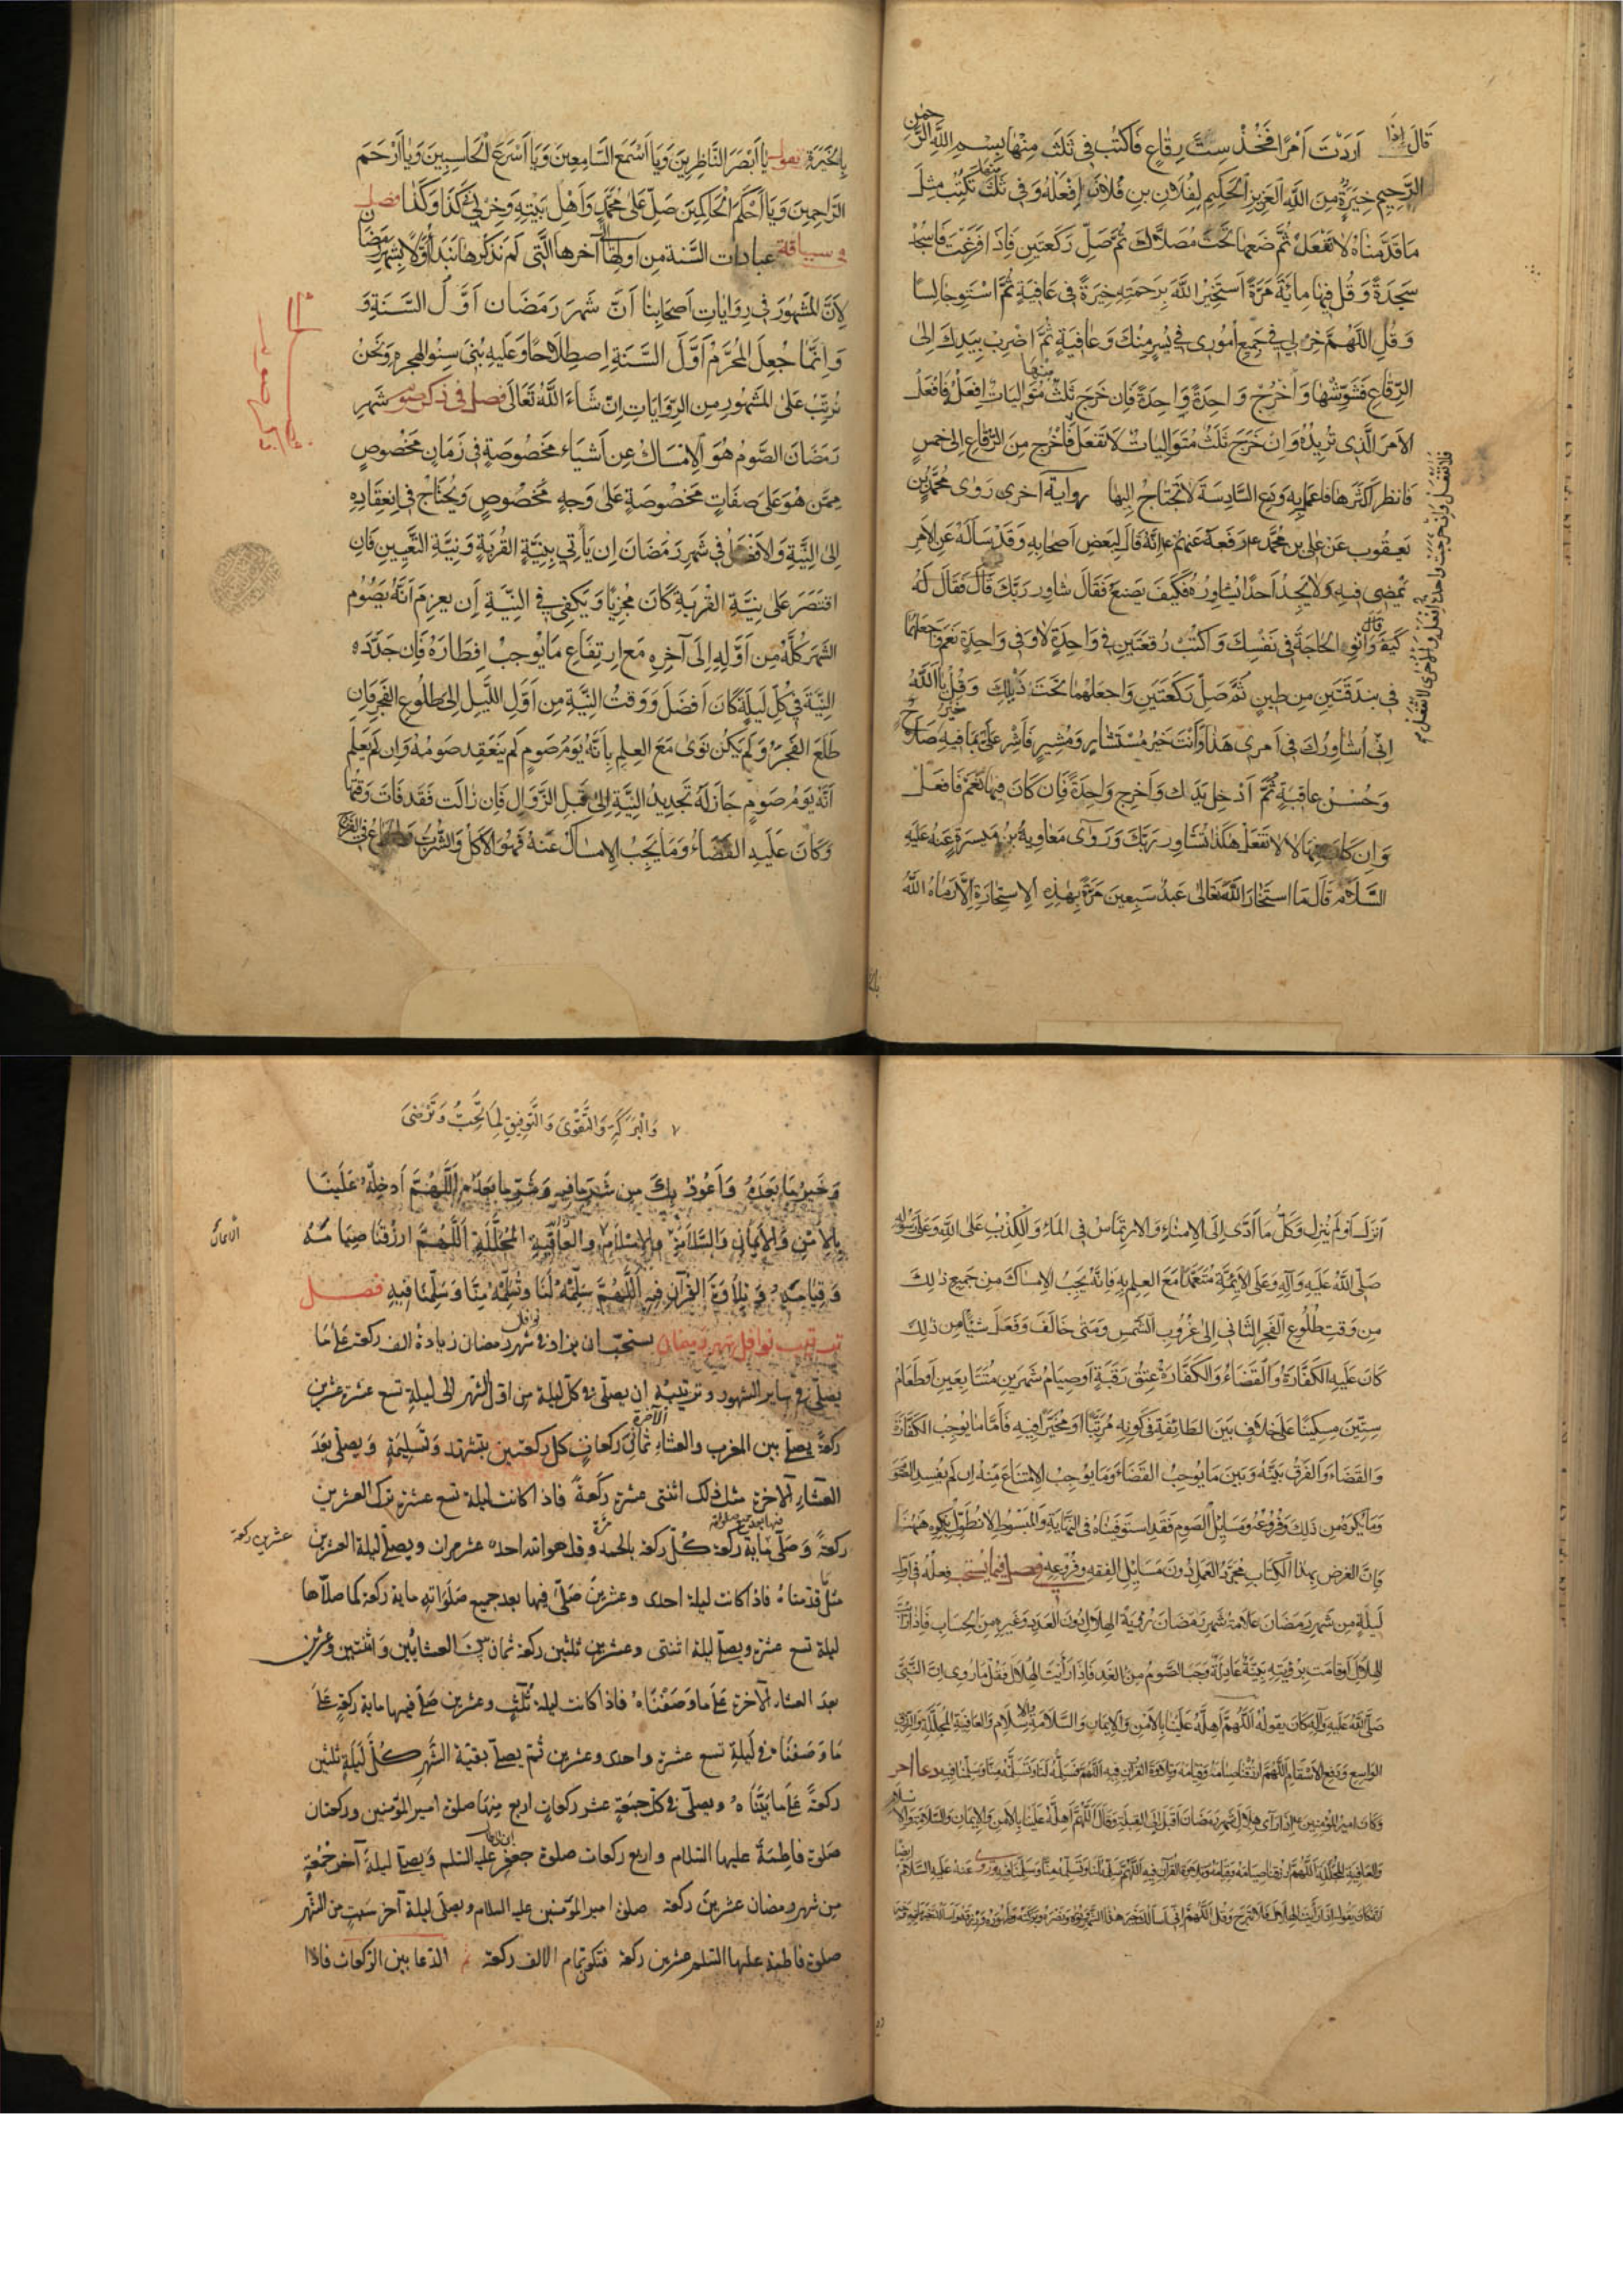 قَالَ إِذَا أَرَدْتَ أَمْرًا فَخُذْ سِتَّ رِقَاعٍ فَاكْتُبْ فِي ثَلَثَ مِنْهَا بِسْمِ اللَّهِ الرَّحْمٰنِ
الرَّحِيمِ خِيَرَةٌ مِنَ اللَّهِ الْعَزِيزِ الْحَكِيمِ لِفُلَانِ بنِ فُلَانَ إِفْعَلْهُ وَفِي ثَلَثَ مِنْهَا تَكْتُبُ مِثْلَ
مَا قَدَّمْنَاهُ لَا تَفْعَلْ ثُمَّ ضَعْهَا تَحْتَ مُصَلَّاكَ ثُمَّ صَلِّ رَكْعَتَينِ فَإِذَا فَرَغْتَ فَاسْجُدْ
سَجْدَةً وَقُلْ فِيهَا مِائَةَ مَرَّةٍ أَسْتَخِيرُ اللَّهَ بِرَحْمَتِهِ خِيَرَةً فِي عَافِيَةٍ ثُمَّ اسْتَوِ جَالِسًا
وَقُلِ اللَّهُمَّ خِرْ لِي فِي جَمِيعِ أُمُورِي فِي يُسْرٍ مِنْكَ وَعَافِيَةٍ ثُمَّ اضْرِبْ بِيَدِكَ إِلَى
الرِّقَاعِ فَشَوِّشْهَا وَأَخْرِجْ وَاحِدَةً وَاحِدَةً فَإِن خَرَجَ ثَلَثٌ مِنْهَا مُتَوَالِيَاتٌ افْعَلْ فَافْعَلْ
الأَمرَ الَّذِي تُرِيدُهُ وَإِن خَرَجَ ثَلَثٌ مُتَوَالِيَاتٌ لَا تَفْعَلْ فَأَخْرِج مِنَ الرِّقَاعِ إِلَى خَمسٍ
فَانظُر أَكْثَرَهَا فَاعمَل بِهِ وَدَعِ السَّادِسَةَ لَا تَحْتَاجُ إِلَيْهَا رِوَايَةٌ أُخْرَى رَوَى مُحَمَّدُ بْنُ
يَعقُوبَ عَنْ عَلِيِّ بنِ مُحَمَّدٍ رَفَعَهُ عَنْهُمْ ع أَنَّهُ قَالَ لِبَعْضِ أَصحَابِهِ وَقَدْ سَأَلَهُ عَنِ الأَمرِ
يَمْضِي فِيهِ وَلَا يَجِدُ أَحَدًا يُشَاوِرُهُ فَكَيْفَ يَصنَعُ فَقَالَ شَاوِر رَبَّكَ قَالَ فَقَالَ لَهُ
كَيْفَ قَالَ وَانْوِ الحَاجَةَ فِي نَفْسِكَ وَاكْتُبْ رُقعَتَينِ فِي وَاحِدَةٍ لَا وَفِي وَاحِدَةٍ نَعَم وَاجعَلْهُمَا
فِي بُندُقَتَينِ مِن طِينٍ ثُمَّ صَلِّ رَكعَتَينِ وَاجعَلْهُمَا تَحْتَ ذَيْلِكَ وَقُلْ يَا اللَّهُ
إِنِّي أُشَاوِرُكَ فِي أَمرِي هَذَا وَأَنْتَ خَيْرُ مُسْتَشَارٍ وَمُشِيرٍ فَأَشِر عَلَيَّ بِمَا فِيهِ صَلَاحٌ
وَحُسْنُ عَاقِبَةٍ ثُمَّ أَدْخِل يَدَكَ وَأَخرِج وَاحِدَةً فَإِن كَانَ فِيهَا نَعَم فَافعَلْ
وَإِن كَانَ فِيهَا لَا لَا تَفعَلْ هَكَذَا تُشَاوِر رَبَّكَ وَرَوَى مُعَاوِيَةُ بْنُ مَيْسَرَةَ عَنْهُ عَلَيهِ
السَّلَامُ قَالَ مَا استَخَارَ اللَّهَ تَعَالَى عَبدٌ سَبعِينَ مَرَّةً بِهَذِهِ الِاستِخَارَةِ إِلَّا رَمَاهُ اللَّهُ
فلا تفعل وان خرجت واحدة افعل والاخرى لا تفعل
بِالْخِيَرَةِ يقول يَا أَبْصَرَ النَّاظِرِينَ وَيَا أَسْمَعَ السَّامِعِينَ وَيَا أَسْرَعَ الْحَاسِبِينَ وَيَا أَرْحَمَ
الرَّاحِمِينَ وَيَا أَحْكَمَ الْحَاكِمِينَ صَلِّ عَلَى مُحَمَّدٍ وَأَهْلِ بَيْتِهِ وَخِرْ لِي كَذَا وَكَذَا فصل
فى سياقة عبادات السَّنة مِن اولها الى آخرها الَّتِي لَم نَذكُرها نَبدَأُ أَوَّلًا بِشَهْرِ رَمَضَانَ
لِأَنَّ المَشْهُورَ فِي رِوَايَاتِ أَصحَابِنَا أَنَّ شَهرَ رَمَضَانَ أَوَّلُ السَّنَةِ وَ
وَإِنَّمَا جُعِلَ المُحَرَّمُ أَوَّلَ السَّنَةِ اِصطِلَاحًا وَعَلَيهِ بُنِيَ سِنُو الهِجرَةِ وَنَحْنُ
نُرَتِّبُ عَلَى المَشْهُورِ مِنَ الرِّوَايَاتِ إِنْ شَاءَ اللَّهُ تَعَالَى فصل فى ذكر صوم شهرِ
رَمَضَانَ الصَّومُ هُوَ الإِمْسَاكُ عَن أَشيَاءَ مَخصُوصَةٍ فِي زَمَانٍ مَخْصُوصٍ
مِمَّن هُوَ عَلَى صِفَاتٍ مَخْصُوصَةٍ عَلَى وَجهٍ مَخْصُوصٍ وَيُحتَاجُ فِي انعِقَادِهِ
إِلَى النِّيَّةِ وَالأَفضَلُ فِي شَهرِ رَمَضَانَ أَن يَأتِي بِنِيَّةِ القُرْبَةِ وَنِيَّةِ التَّعيِينِ فَإِنِ
اقتَصَرَ عَلَى نِيَّةِ القُربَةِ كَانَ مُجْزِيًا وَيَكفِي فِي النِّيَّةِ أَن يَعزِمَ أَنَّهُ يَصُومُ
الشَّهرَ كُلَّهُ مِن أَوَّلِهِ إِلَى آخِرِهِ مَعَ ارتِفَاعِ مَا يُوجِبُ إِفطَارَهُ فَإِن جَدَّدَ
النِّيَّةَ فِي كُلِّ لَيلَةٍ كَانَ أَفضَلَ وَوَقتُ النِّيَّةِ مِن أَوَّلِ اللَّيلِ إِلَى طُلُوعِ الفَجرِ فَإِن
طَلَعَ الفَجرُ وَلَم يَكُن نَوَى مَعَ العِلمِ بِأَنَّهُ يَومُ صَومٍ لَم يَنعَقِد صَومُهُ وَإِن لَم يَعلَم
أَنَّهُ يَومُ صَومٍ جَازَ لَهُ تَجدِيدُ النِّيَّةِ إِلَى قَبلِ الزَّوَالِ فَإِن زَالَت فَقَد فَاتَ وَقتُهَا
وَكَانَ عَلَيهِ القَضَاءُ وَمَا يَجِبُ الإِمسَاكُ عَنهُ فَهُوَ الأَكلُ وَالشُّربُ وَالجِمَاعُ فِي الفَرجِ
أَنزَلَ أَو لَم يُنزِل وَكُلُّ مَا أَدَّى إِلَى الإِمنَاءِ وَالِارتِمَاسُ فِي المَاءِ وَالكَذِبُ عَلَى اللَّهِ وَعَلَى رَسُولِهِ
صَلَّى اللَّهُ عَلَيهِ وَآلِهِ وَعَلَى الأَئِمَّةِ مُتَعَمِّدًا مَعَ العِلمِ بِهِ فَإِنَّهُ يَجِبُ الإِمسَاكُ مِن جَمِيعِ ذَلِكَ
مِن وَقتِ طُلُوعِ الفَجرِ الثَّانِي إِلَى غُرُوبِ الشَّمسِ وَمَتَى خَالَفَ وَفَعَلَ شَيئًا مِن ذَلِكَ
كَانَ عَلَيهِ الكَفَّارَةُ وَالقَضَاءُ وَالكَفَّارَةُ عِتقُ رَقَبَةٍ أَو صِيَامُ شَهرَينِ مُتَتَابِعَينِ أَو إطعَامُ
سِتِّينَ مِسكِينًا عَلَى خِلَافٍ بَينَ الطَّائِفَةِ فِي كَونِهِ مُرَتَّبًا أَو مُخَيَّرًا فِيهِ فَأَمَّا مَا يُوجِبُ الكَفَّارَةَ
وَالقَضَاءَ وَالفَرقُ بَينَهُ وَبَينَ مَا يُوجِبُ القَضَاءَ وَمَا يُوجِبُ الِامتِنَاعَ مِنهُ إِن لَم يُفسِدِ الصَّومَ
وَمَا يُكرَهُ مِن ذَلِكَ وَفُرُوعُهُ وَمَسَائِلُ الصَّومِ فَقَدِ استَوفَينَاهُ فِي النِّهَايَةِ وَالمَبسُوطِ لَا نُطَوِّلُ بِذِكرِهِ هَهُنَا
فَإِنَّ الغَرَضَ بِهَذَا الكِتَابِ مُجَرَّدُ العَمَلِ دُونَ مَسَائِلِ الفِقهِ وَفُرُوعِهِ فصل فيما يستحب فِعلُهُ فِي أَوَّلِ
لَيلَةٍ مِن شَهرِ رَمَضَانَ عَلَامَةُ شَهرِ رَمَضَانَ رُؤيَةُ الهِلَالِ دُونَ العَدَدِ وَغَيرِهِ مِنَ الحِسَابِ فَإِذَا
الهِلَالُ أَو قَامَت بِرُؤيَتِهِ بَيِّنَةٌ عَادِلَةٌ وَجَبَ الصَّومُ مِنَ الغَدِ فَإِذَا رَأَيتَ الهِلَالَ فَقُل مَا رُوِيَ أنَّ النَّبِيَّ
صَلَّى اللَّهُ عَلَيهِ وَآلِهِ كَانَ يَقُولُهُ اللَّهُمَّ أَهِلَّهُ عَلَينَا بِالأَمنِ وَالإِيمَانِ وَالسَّلَامَةِ وَالإسلَامِ وَالعَافِيَةِ المُجَلِّلَةِ وَالرِّزقِ
الوَاسِعِ وَدَفعِ الأَسقَامِ اللَّهُمَّ ارزُقنَا صِيَامَهُ وَقِيَامَهُ وَتِلَاوَةَ القُرآنِ فِيهِ اللَّهُمَّ سَلِّمهُ لَنَا وَتَسَلَّمهُ مِنَّا وَسَلِّمنَا فِيهِ دعا اخر
وَكَانَ أَمِيرُ المُؤمِنِينَ ع إِذَا رَأَى هِلَالَ شَهرِ رَمَضَانَ أَقبَلَ إِلَى القِبلَةِ وَقَالَ اللَّهُمَّ أَهِلَّهُ عَلَينَا بِالأَمنِ وَالإِيمَانِ وَالسَّلَامَةِ وَالإسلام
وَالعَافِيَةِ المُجَلِّلَةِ اللَّهُمَّ ارزُقنَا صِيَامَهُ وَقِيَامَهُ وَتِلَاوَةَ القُرآنِ فِيهِ اللَّهُمَّ سَلِّمهُ لَنَا وَتَسَلَّمهُ مِنَّا وَسَلِّمنَا فِيهِ وَرُوِيَ ايضا عَنهُ عَلَيهِ السَّلَامُ
أَنَّهُ كَانَ يَقُولُ إِذَا رَأَيتَ الهِلَالَ فَلَا تَبرَح وَقُل اللَّهُمَّ إِنِّي أَسأَلُكَ خَيرَ هَذَا الشَّهرِ وَنُورَهُ وَنَصرَهُ وَبَرَكَتَهُ وَطَهُورَهُ وَرِزقَهُ وَأَسأَلُكَ خَيرَ مَا فِيهِ
وَالْبَرَكَةِ وَالتَّقْوَى وَالتَّوفِيقِ لِمَا تُحِبُّ وَتَرْضَى
وَخَيرَ مَا بَعدَهُ وَأَعُوذُ بِكَ مِن شَرِّ مَا فِيهِ وَشَرِّ مَا بَعدَهُ اللَّهُمَّ أَدخِلهُ عَلَينَا
بِالأَمنِ وَالإِيمَانِ وَالسَّلَامَةِ وَالإِسلَامِ وَالعَافِيَةِ المُجَلِّلَةِ اللَّهُمَّ ارزُقنَا صِيَامَهُ
وَقِيَامَهُ وَتِلَاوَةَ القُرآنِ فِيهِ اللَّهُمَّ سَلِّمهُ لَنَا وَتَسَلَّمهُ مِنَّا وَسَلِّمنَا فِيهِ فصل
ترتيب نوافل شهر رمضان يستحبّ ان يزاد فى نوافل شهر رمضان زيادة الف ركعة على ما
يصلّى فى ساير الشهور وترتيبه ان يصلّى فى كلّ ليلة من اول الشهر الى ليلة تسع عشرة عشرين
ركعةً يصلى بين المغرب والعشاء الآخرة ثمانى ركعات كل ركعتين بتشهد وتسليمة ويصلى بعد
العشاء الآخرة مثل ذلك اثنتى عشرة ركعةً فاذا كانت ليلة تسع عشرة ترك العشرين
ركعةً وصلّى مائة ركعة كلّ ركعة بالحمد مرّة وقل هو الله احد عشر مرات ويصلى ليلة العشرين عشرين ركعة
مثل ما قدّمناه فاذا كانت ليلة احدى وعشرين صلّى فيها بعد جميع صلواته ماية ركعة كما صلّاها
ليلة تسع عشرة ويصلى ليلة اثنتى وعشرين ثلثين ركعة ثمان بين العشائين واثنتين وعشرين
بعد العشاء الآخرة على ما وصفناه فاذا كانت ليلة ثلث وعشرين صلى فيها ماية ركعة على
ما وصفناه فى ليلة تسع عشرة واحدى وعشرين ثم يصلى بقيّة الشهر كلّ ليلة ثلثين
ركعةً على ما بيّنّاه ويصلّى فى كلّ جمعةٍ عشر ركعاتٍ اربع منها صلوة امير المؤمنين وركعتان
صلوة فاطمة عليها السلام واربع ركعات صلوة جعفر عليه السلم ويصلى ليلة آخر جمعةٍ
من شهر رمضان عشرين ركعة صلوة امير المؤمنين عليه السلام ويصلى ليلة آخر سبت من الشهر
صلوة فاطمة عليها السلم عشرين ركعة فتكون تمام الالف ركعة الدعا بين الركعات فاذا